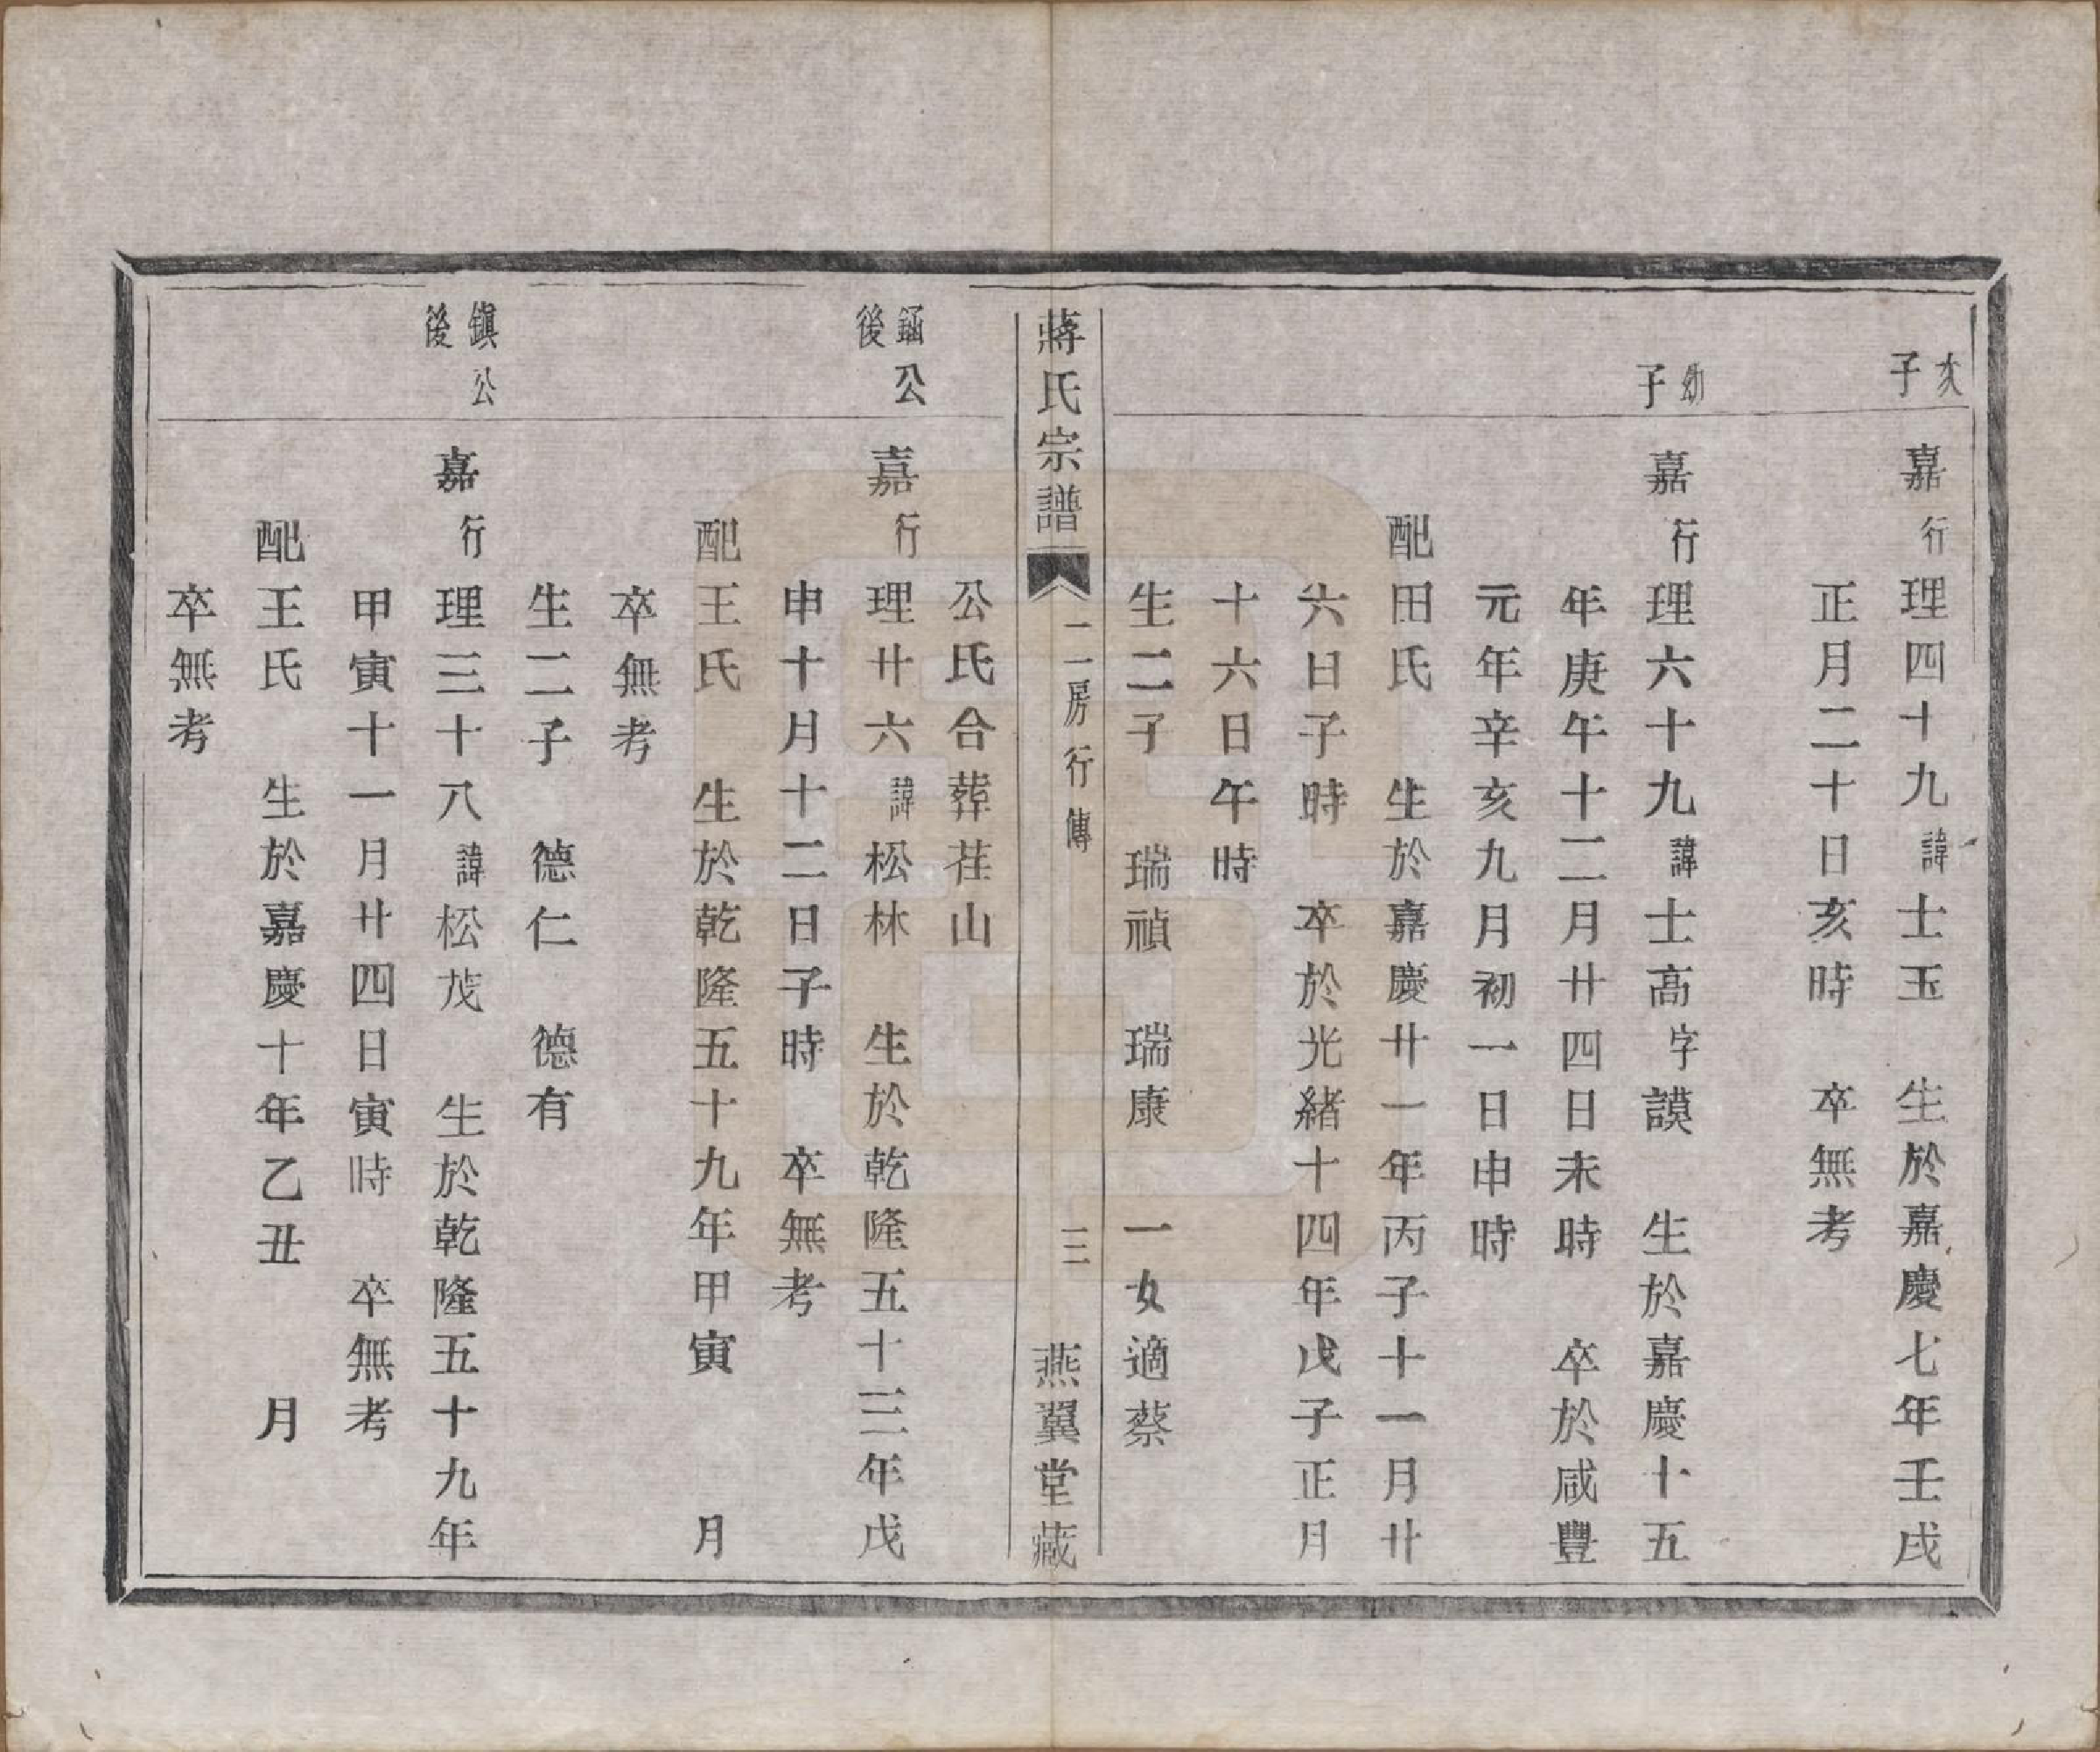 次子
嘉行理四十九諱士玉　生於嘉慶七年壬戌
正月二十日亥時　卒無考
幼子
嘉行理六十九諱士高字謨　生於嘉慶十五
年庚午十二月廿四日未時　卒於咸豐
元年辛亥九月初一日申時
配田氏　生於嘉慶廿一年丙子十一月廿
六日子時　卒於光緒十四年戊子正月
十六日午時
生二子　瑞禎　瑞康　一女適蔡
蔣氏宗譜　二房行傳　三　燕翼堂藏
公氏合葬荏山
公後
嘉行理廿六諱松林　生於乾隆五十三年戊
申十月十二日子時　卒無考
配王氏　生於乾隆五十九年甲寅　月
卒無考
生二子　德仁　德有
鎮公後
嘉行理三十八諱松茂　生於乾隆五十九年
甲寅十一月廿四日寅時　卒無考
配王氏　生於嘉慶十年乙丑　月
卒無考